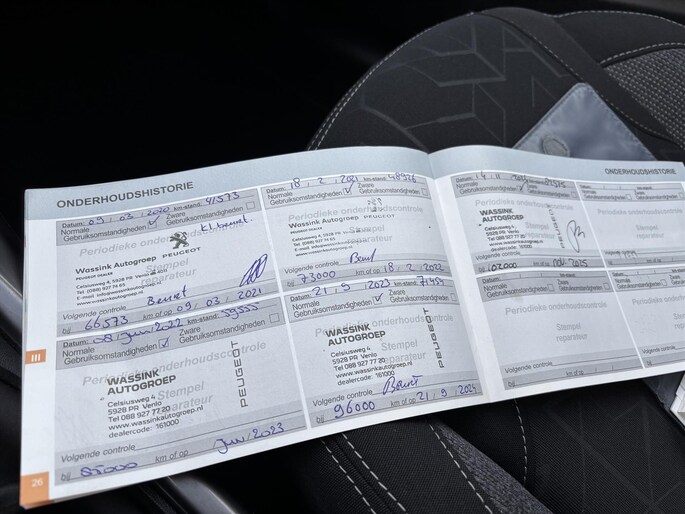 ONDERHOUDSHISTORIE
Datum: 09.03.2020 km-stand: 41573
Normale Gebruiksomstandigheden Zware Gebruiksomstandigheden
Periodieke onderhoudscontrole
kl. beurt.
Wassink Autogroep PEUGEOT
PEUGEOT DEALER
Celsiusweg 4, 5928 PR Venlo
Tel. (088) 927 74 65
www.wassinkautogroep.nl
Stempel
reparateur
Volgende controle Beurt
bij 66573 km of op 09/03/2021
Datum: 08 juni 2022 km-stand: 59555
Normale Gebruiksomstandigheden Zware Gebruiksomstandigheden
Periodieke onderhoudscontrole
WASSINK
AUTOGROEP
Celsiusweg 4
5928 PR Venlo
Tel 088 927 77 20
www.wassinkautogroep.nl
dealercode: 161000
PEUGEOT
Stempel
reparateur
Volgende controle
bij 85000 km of op juni 2023
III
26
Datum: 18.2.2021 km-stand: 48926
Normale Gebruiksomstandigheden Zware Gebruiksomstandigheden
Periodieke onderhoudscontrole
Wassink Autogroep PEUGEOT
PEUGEOT DEALER
Celsiusweg 4, 5928 PR Venlo
Volgende controle Beurt
bij 73000 km of op 18/2/2022
Datum: 21/9/2023 km-stand: 71457
Normale Gebruiksomstandigheden Zware Gebruiksomstandigheden
Periodieke onderhoudscontrole
WASSINK
AUTOGROEP
Celsiusweg 4
5928 PR Venlo
Tel 088 927 77 20
www.wassinkautogroep.nl
dealercode: 161000
PEUGEOT
Volgende controle Beurt
bij 96000 km of op 21/9/2024
ONDERHOUDSHISTORIE
Datum: km-stand:
Normale Gebruiksomstandigheden Zware Gebruiksomstandigheden
Periodieke onderhoudscontrole
WASSINK
AUTOGROEP
Celsiusweg 4
5928 PR Venlo
Tel 088 927 77 20
www.wassinkautogroep.nl
PEUGEOT
Volgende controle
bij 102000 km of op
Datum: km-stand:
Normale Gebruiksomstandigheden Zware Gebruiksomstandigheden
Periodieke onderhoudscontrole
Stempel
reparateur
Volgende controle
bij km of op
Periodieke onderhoudscontrole
Stempel
reparateur
Volgende controle
Periodieke onderhoudscontrole
Stempel
reparateur
Volgende controle
bij km of op